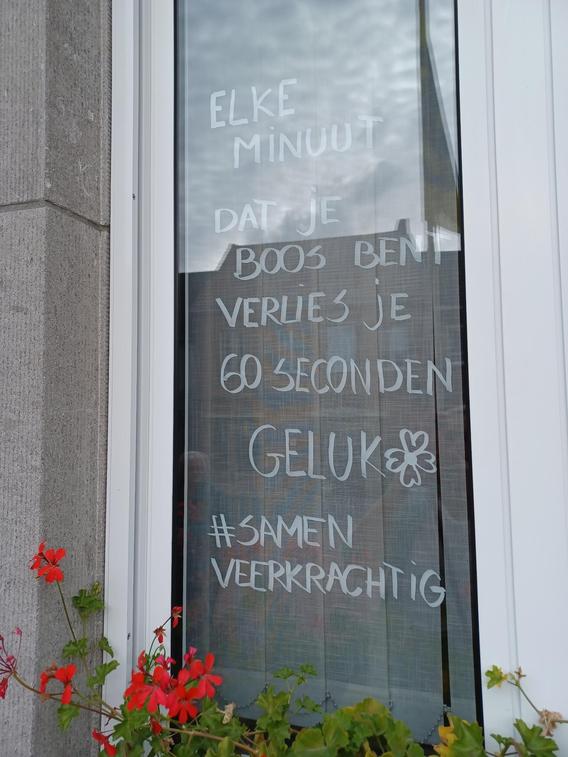 ELKE
MINUUT
DAT je
BOOS BENT
VERLIES JE
60 SECONDEN
GELUK
#SAMEN
VEERKRACHTIG